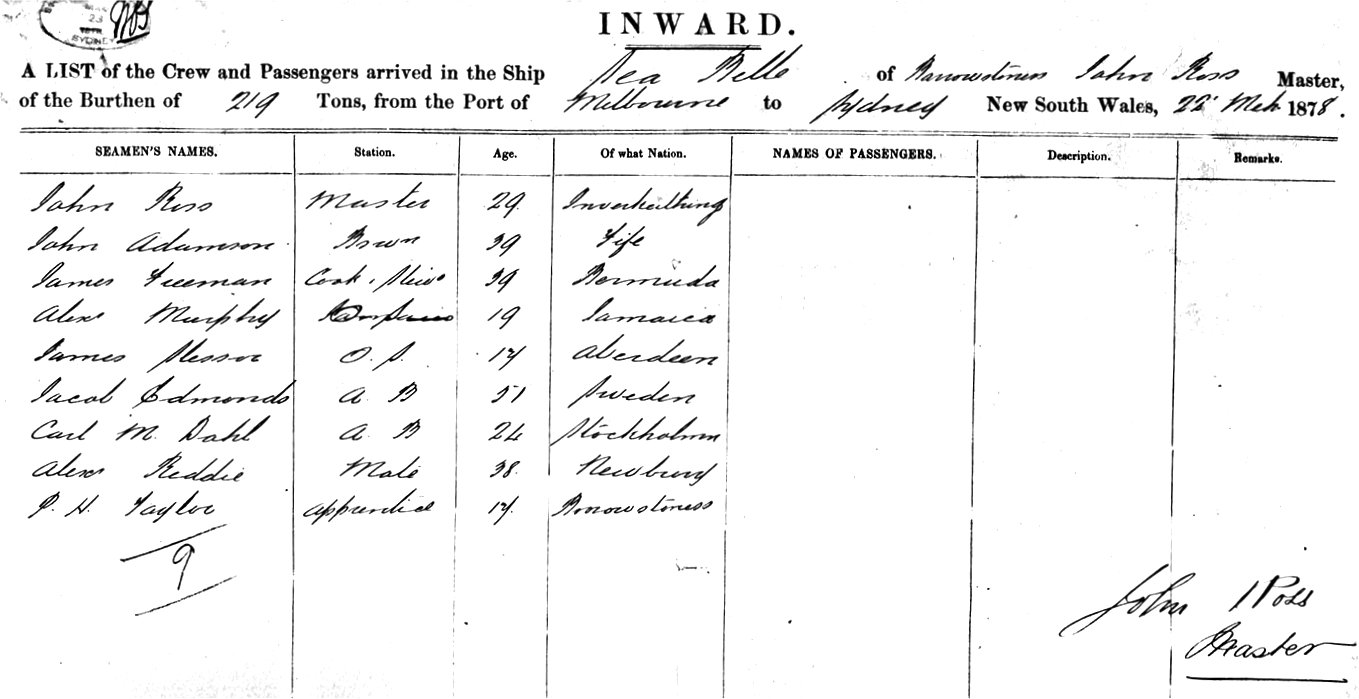 INWARD.
A LIST of the Crew and Passengers arrived in the Ship Sea Belle of Borrowstoness John Ross Master,
of the Burthen of 219 Tons, from the Port of Melbourne to Sydney New South Wales, 22 Mch 1878.
SEAMEN'S NAMES. Station. Age. Of what Nation. NAMES OF PASSENGERS. Description. Remarks.
John Ross Master 29 Inverkeithing
John Adamson Bswn 39 Fife
James Freeman Cook Stewd 39 Bermuda
Alexr Murphy 19 Jamaica
James Slessor O.S. 17 Aberdeen
Jacob Edmonds A B 51 Sweden
Carl M. Dahl A B 24 Stockholm
Alexr Reddie Mate 38 Newburg
P. H. Taylor Apprentice 17 Borrowstoness
9
John Ross
Master
SYDNEY